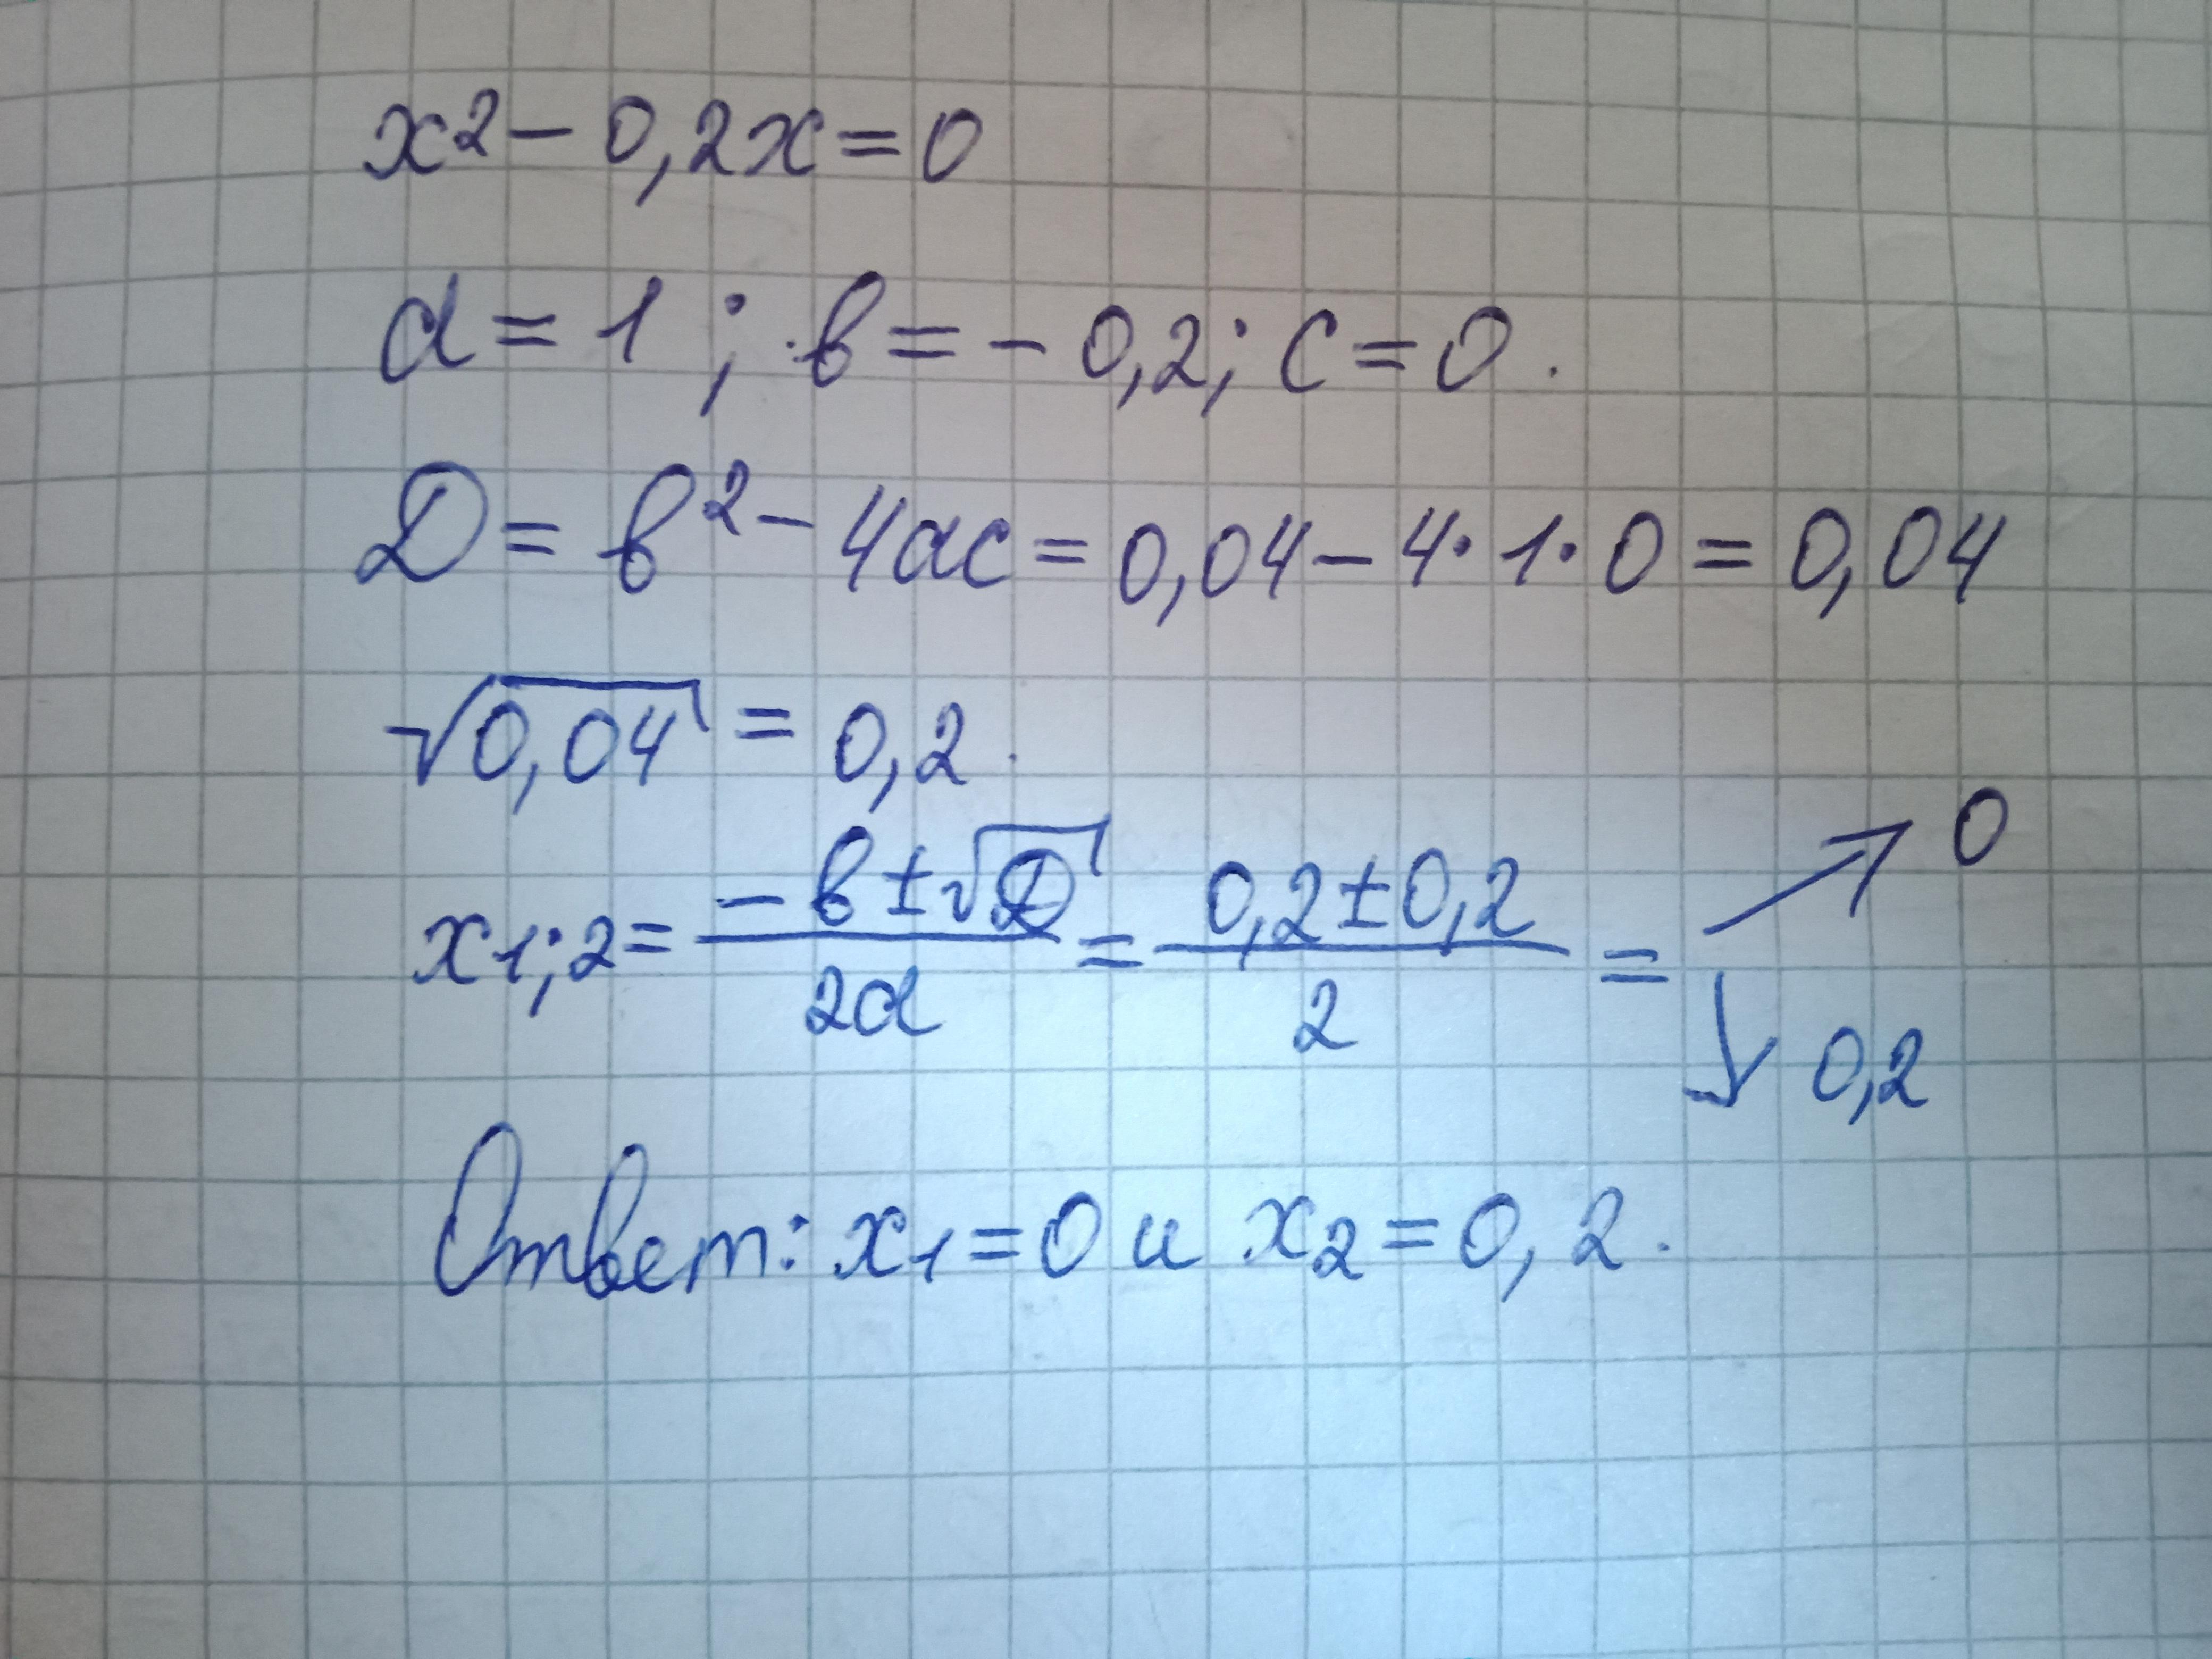 x² - 0,2x = 0
a = 1; в = - 0,2; c = 0.
D = в² - 4ac = 0,04 - 4·1·0 = 0,04
√0,04 = 0,2.
x1;2 = (-в ± √D)/2a = (0,2 ± 0,2)/2 = ↗ 0 ↓ 0,2
Ответ: x₁ = 0 и x₂ = 0,2.